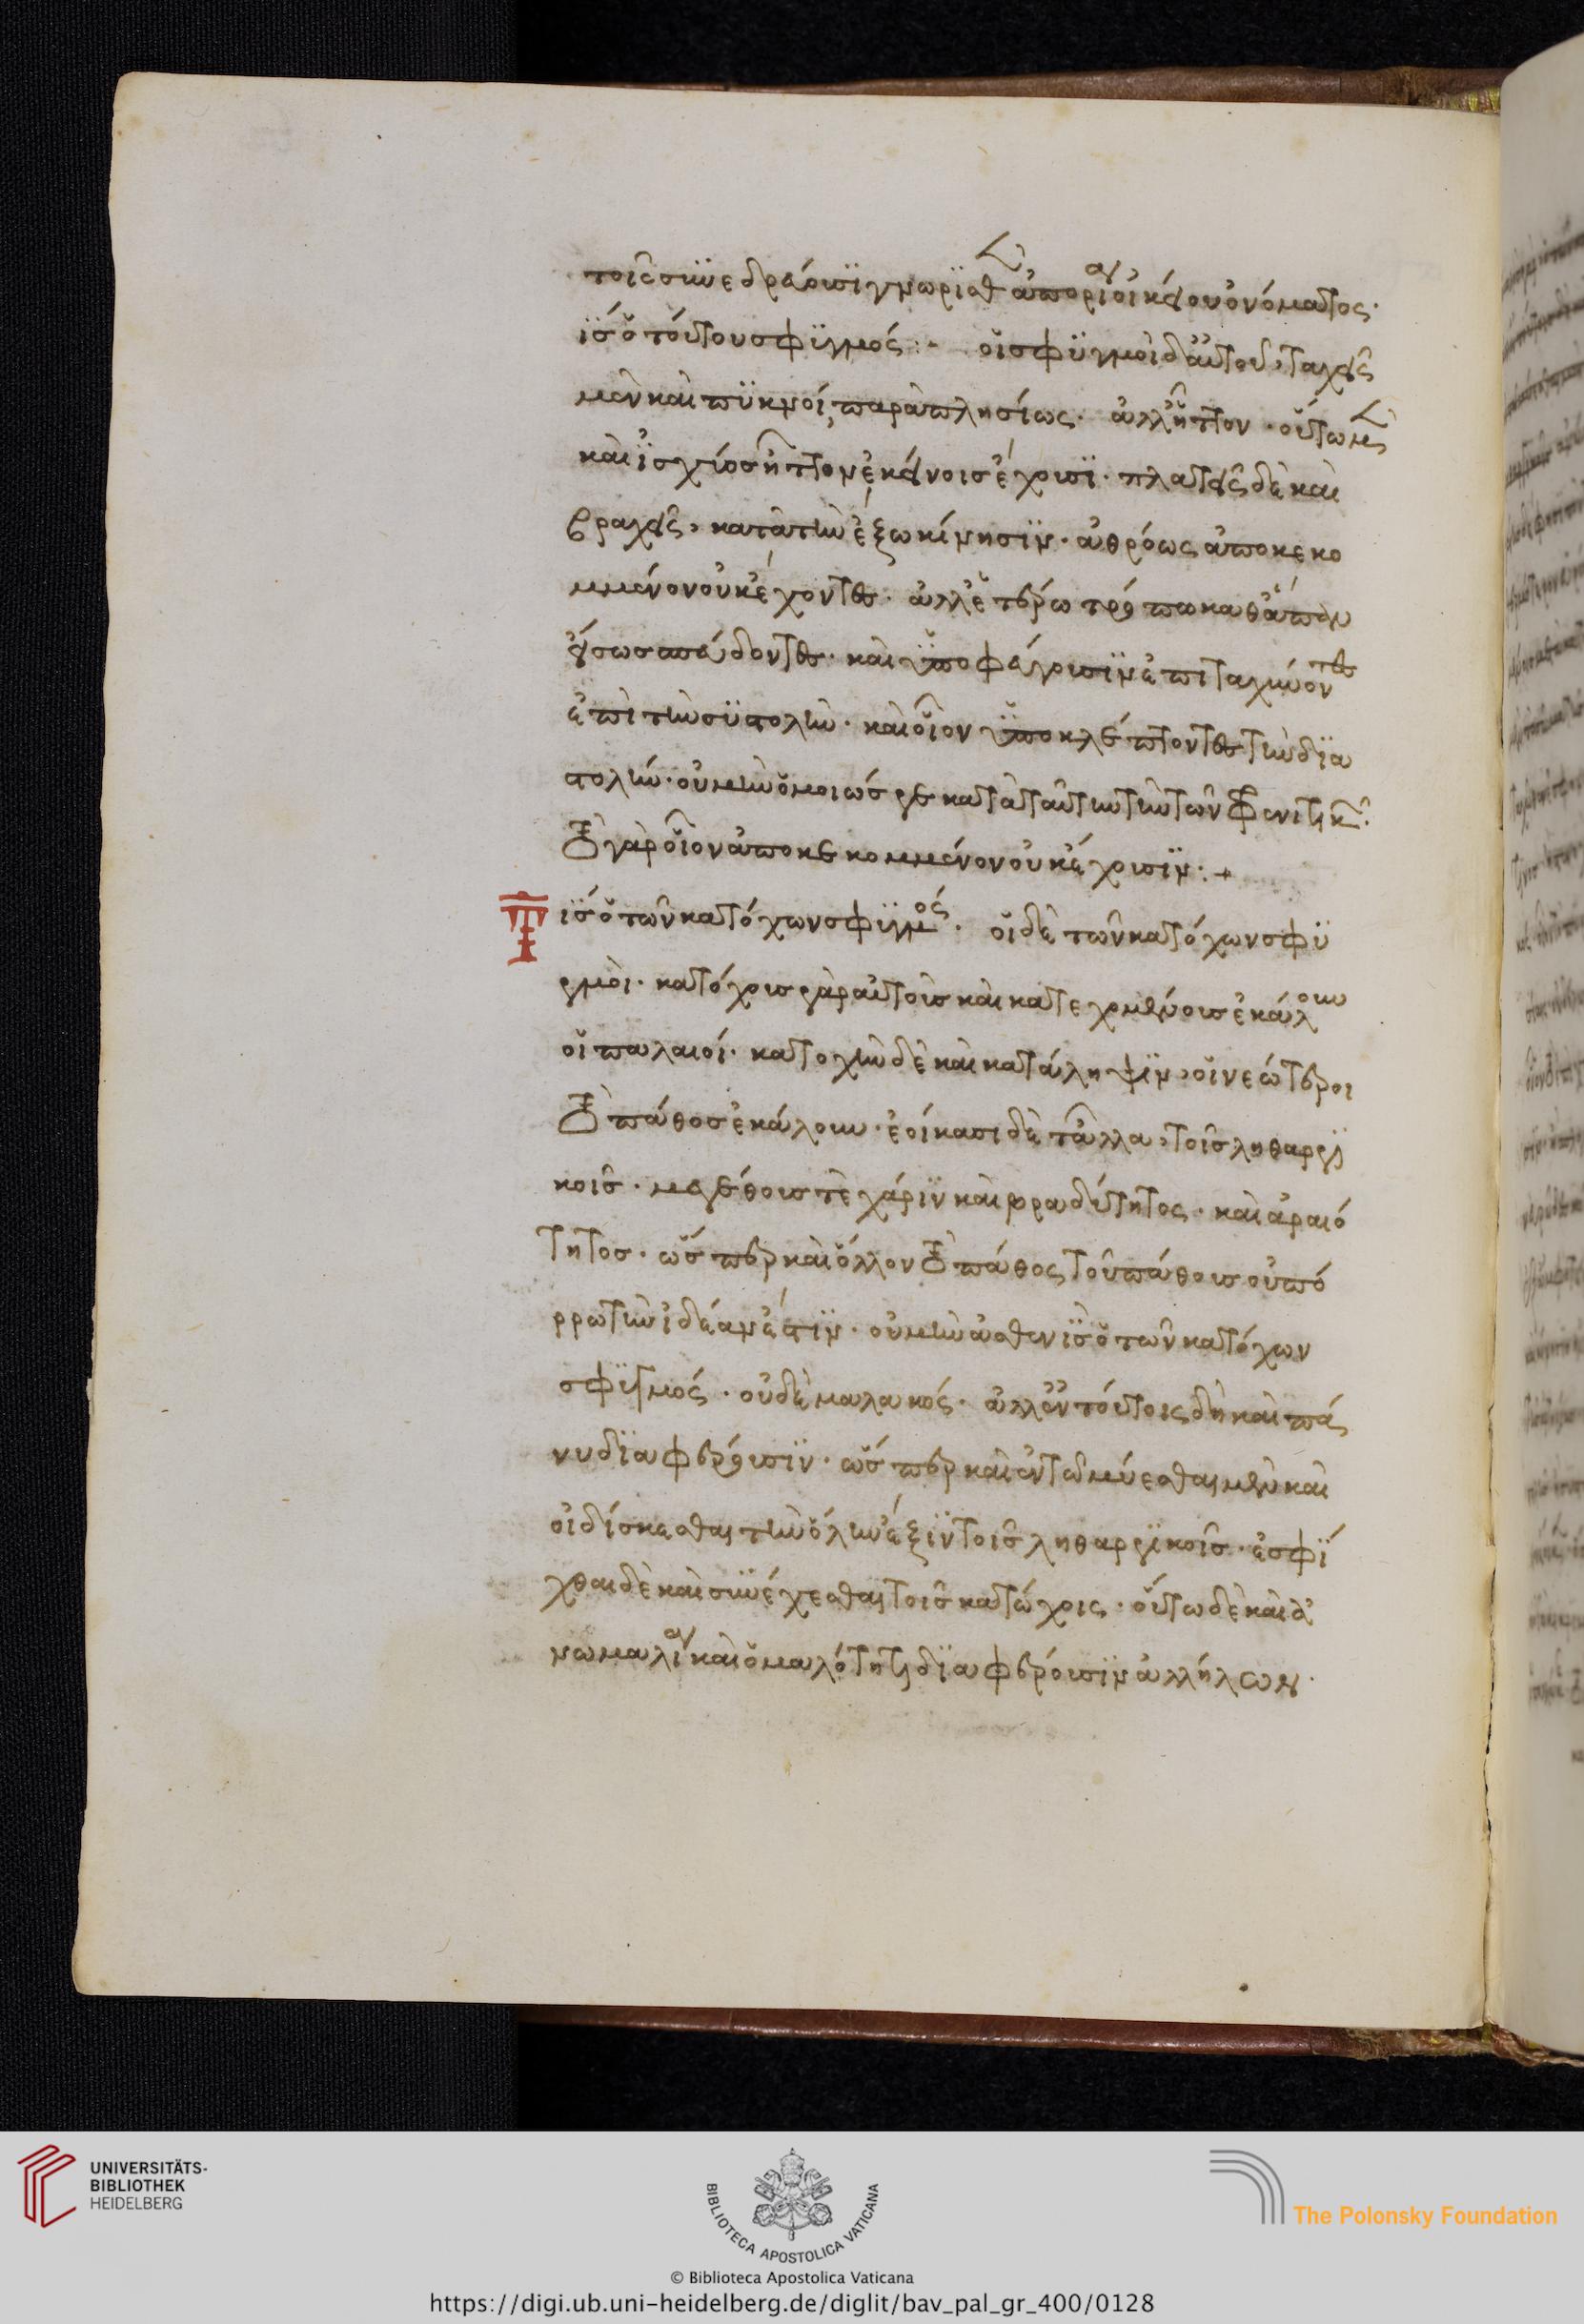 τοῖς συνεδρεύουσι γνωριεῖσθαι ἀπορία οἰκείου ὀνόματος.
τίς ὁ τούτου σφυγμός: οἱ σφυγμοὶ δ' αὐτοῦ, ταχεῖς
μὲν καὶ πυκνοί, παραπλησίως. ἀλλ' ἧττον. οὕτω μὲν
καὶ ἰσχύος ἧττον ἐκείνοις ἔχουσι. πλατεῖς δὲ καὶ
βραχεῖς, κατὰ τὴν ἔξω κίνησιν. ἀθρόως ἀποκεκο
μμένον οὐκ ἔχοντες. ἀλλ' ἑτέρω τρόπω καθάπερ
εἴσω σπεύδοντες. καὶ ὑποφεύγουσιν ἐπιταχύνοντες
ἐπὶ τὴν συστολήν. καὶ οἷον ὑποκλέπτοντες τὴν δια
στολήν. οὐ μὴν ὁμοιώς γε κατὰ ταύτην τὴν τῶν φρενιτικῶν.
τὸ γὰρ οἷον ἀποκεκομμένον οὐκ ἔχουσιν:+
Τίς ὁ τῶν κατόχων σφυγμός. οἱ δὲ τῶν κατόχων σφυ
γμοὶ. κατόχους γὰρ αὐτοὺς καὶ κατεχομένους ἐκάλουν
οἱ παλαιοί. κατοχὴν δὲ καὶ κατάληψιν, οἱ νεώτεροι
τὸ πάθος ἐκάλουν. ἐοίκασι δὲ τἆλλα, τοῖς ληθαργι
κοῖς. μεγέθους τὲ χάριν καὶ βραδύτητος. καὶ ἀραιό
τητος. ὥσπερ καὶ ὅλλον τὸ πάθος τοῦ πάθους οὐ πό
ρρω τὴν ἰδέαν ἐστίν. οὐ μὴν ἀσθενὴς ὁ τῶν κατόχων
σφυγμός. οὐδὲ μαλακός. ἀλλ' ἐν τούτοις δὴ καὶ πά
νυ διαφέρουσιν. ὥσπερ καὶ ἐν τῶ λύεσθαι μὲν καὶ
οἰδίσκεσθαι τὴν ὅλην ἕξιν τοῖς ληθαργικοῖς. ἐσφί
χθαι δὲ καὶ συνέχεσθαι τοῖς κατώχοις. οὕτω δὲ καὶ ἀ
νωμαλία καὶ ὁμαλότητι διαφέρουσιν ἀλλήλων.
UNIVERSITÄTS-
BIBLIOTHEK
HEIDELBERG
BIBLIOTECA APOSTOLICA VATICANA
The Polonsky Foundation
© Biblioteca Apostolica Vaticana
https://digi.ub.uni-heidelberg.de/diglit/bav_pal_gr_400/0128